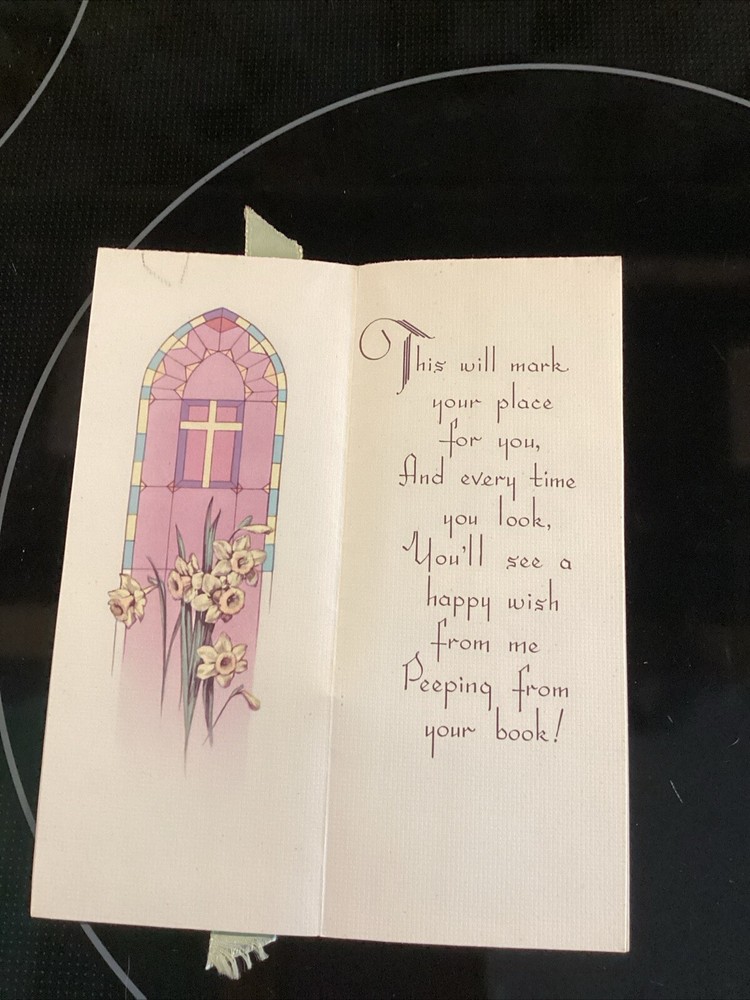 This will mark
your place
for you,
And every time
you look,
You'll see a
happy wish
from me
Peeping from
your book!